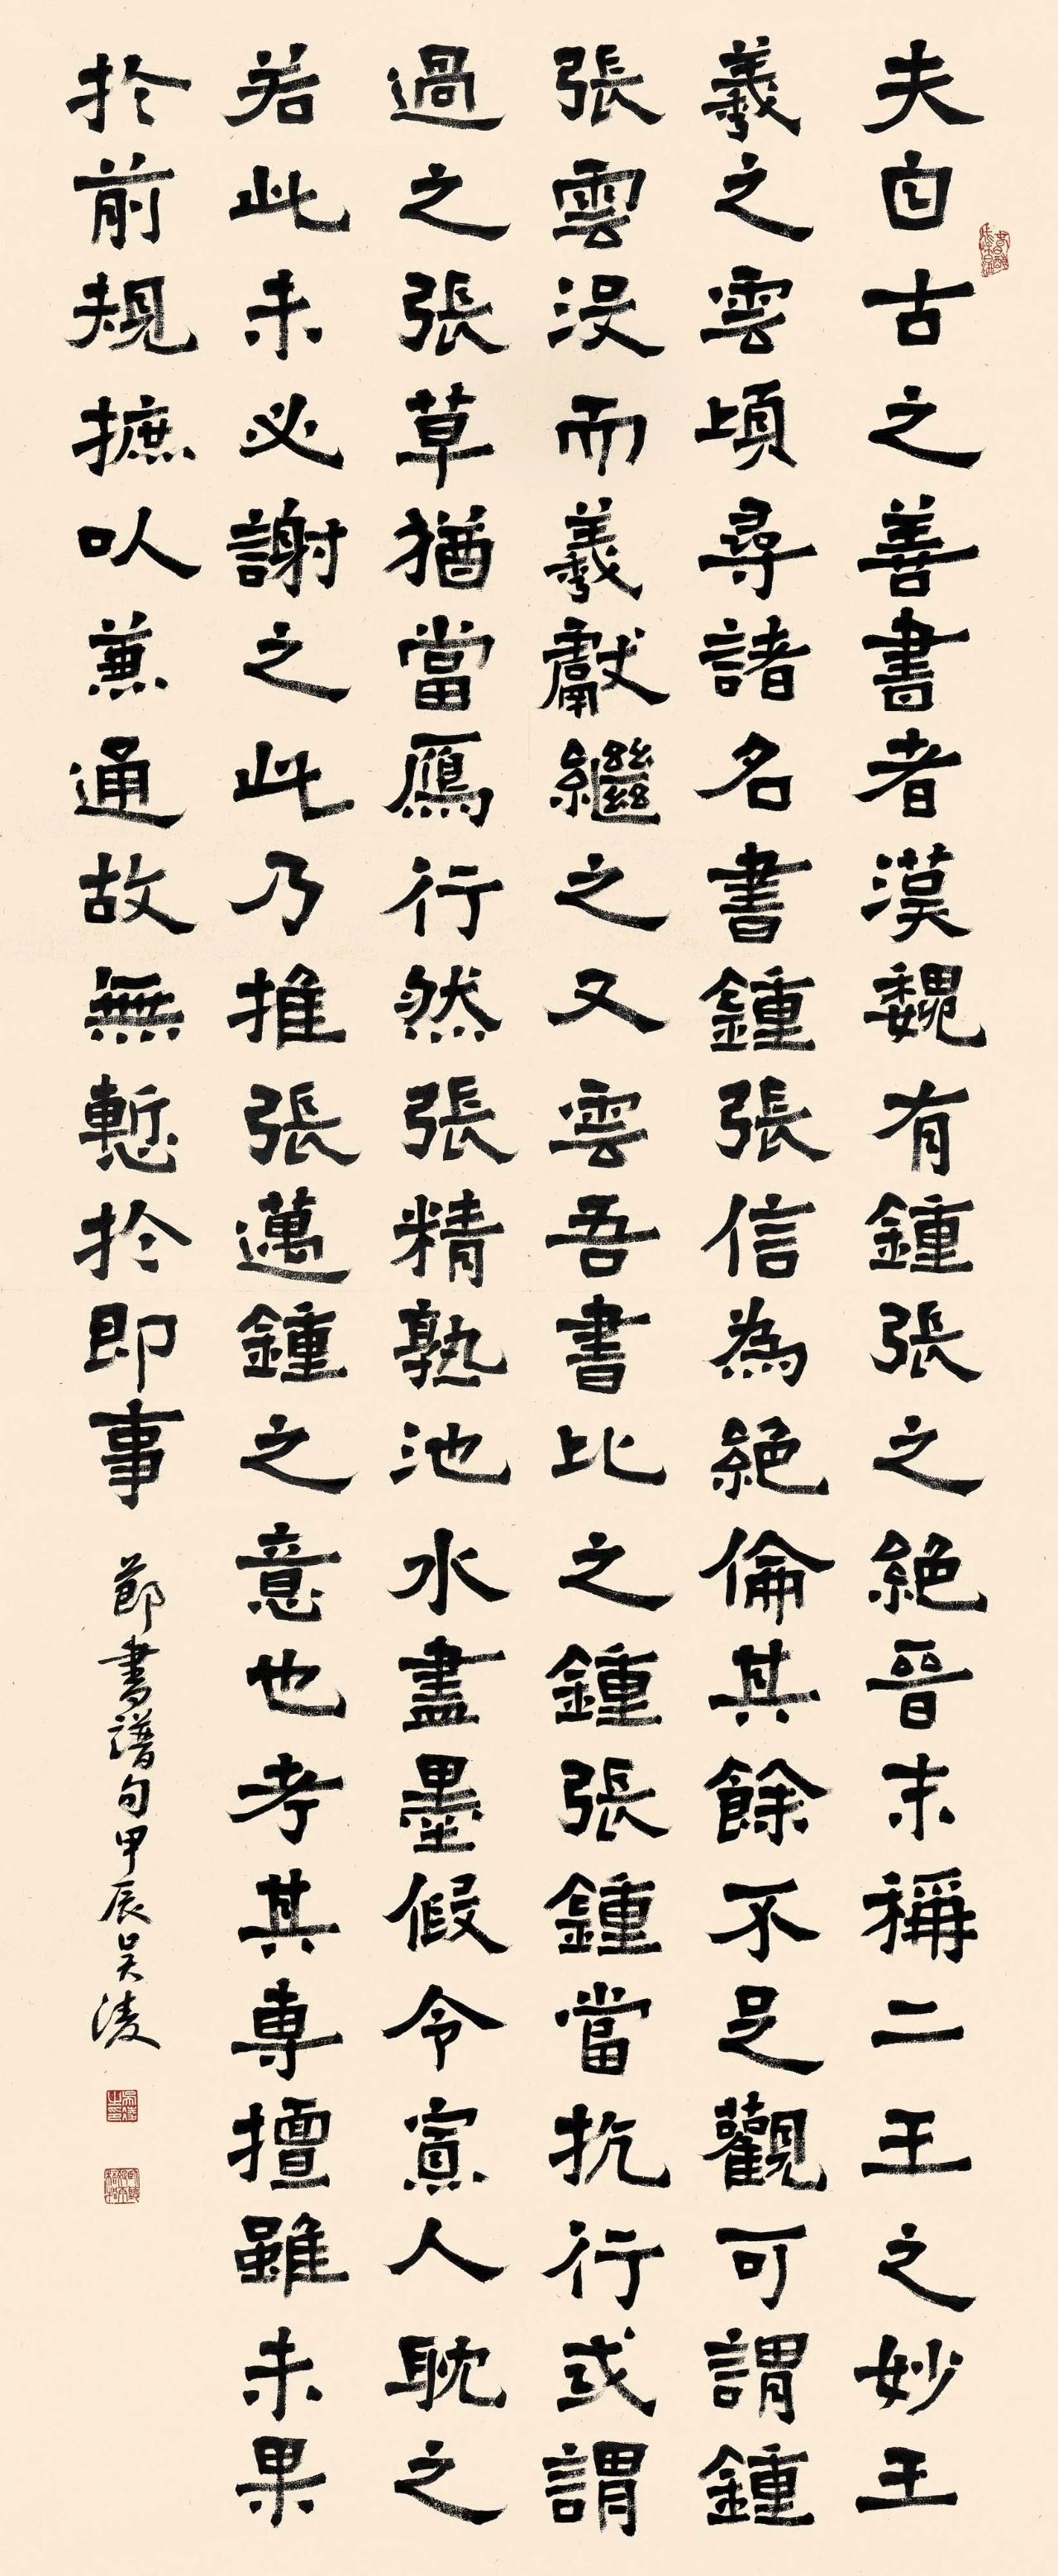 夫自古之善書者漢魏有鍾張之絕晉末稱二王之妙王
羲之雲頃尋諸名書鍾張信為絕倫其餘不足觀可謂鍾
張雲沒而羲獻繼之又雲吾書比之鍾張鍾當抗行或謂
過之張草猶當鴈行然張精熟池水盡墨假令寡人耽之
若此未必謝之此乃推張邁鍾之意也考其專擅雖未果
於前規摭以兼通故無慙於即事
節書譜句甲辰吳淩